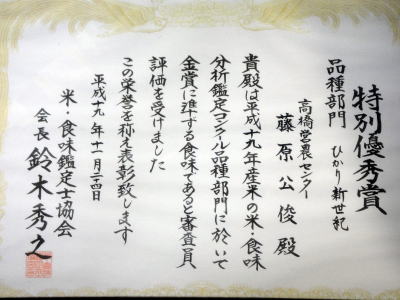 特別優秀賞
品種部門 ひかり新世紀
高橋営農センター
藤原公俊 殿
貴殿は平成十九年産米の米・食味
分析鑑定コンクール品種部門に於いて
金賞に準ずる食味であると審査員
評価を受けました
この栄誉を称え表彰致します
平成十九年十一月二十四日
米・食味鑑定士協会
会長 鈴木秀之